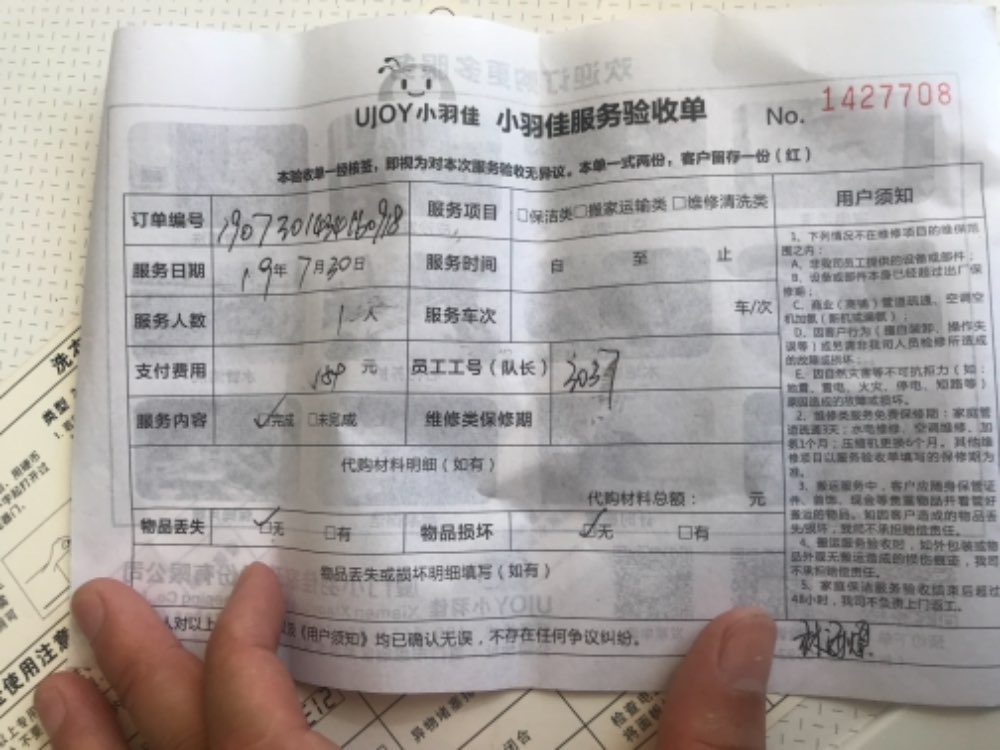 欢迎订购更多服务
UJOY小羽佳 小羽佳服务验收单 No. 1427708
本验收单一经核签，即视为对本次服务验收无异议。本单一式两份，客户留存一份（红）
订单编号 服务项目 □保洁类□搬家运输类□维修清洗类
服务日期 19年7月30日 服务时间 自 至 止
服务人数 1人 服务车次 车/次
支付费用 元 员工工号（队长） 3037
服务内容 ☑完成 □未完成 维修类保修期
代购材料明细（如有）
代购材料总额： 元
物品丢失 ☑无 □有 物品损坏 ☑无 □有
物品丢失或损坏明细填写（如有）
人对以上 及《用户须知》均已确认无误，不存在任何争议纠纷。
用户须知
1、下列情况不在维修项目的维保范
围之内：
A、非我司员工提供的设备或部件；
B、设备或部件本身已经超过出厂保
修期；
C、商业（商铺）管道疏通、空调空
机加氟（新机或漏氟）；
D、因客户行为（擅自装卸、操作失
误等）或另请非我司人员检修所造成
的故障或损坏；
E、因自然灾害等不可抗拒力（如：
地震、雷电、火灾、停电、短路等）
原因造成的故障或损坏。
2、维修类服务免费保修期：家庭管
道疏通3天；水电维修、空调维修、加
氨1个月；压缩机更换6个月。其他维
修项目以服务验收单填写的保修期为
准。
3、搬运服务中，客户应随身保管证
件、首饰、现金等贵重物品并看管好
搬运的物品。如因客户造成的物品丢
失/损坏，我司不承担赔偿责任。
4、搬运服务验收时，如外包装或物
品外观无搬运造成的摔伤痕迹，我司
不承担赔偿责任。
5、家庭保洁服务验收结束后超过
48小时，我司不负责上门返工。
洗衣
类型
使用注意
异物堵塞排
检查电
闭合